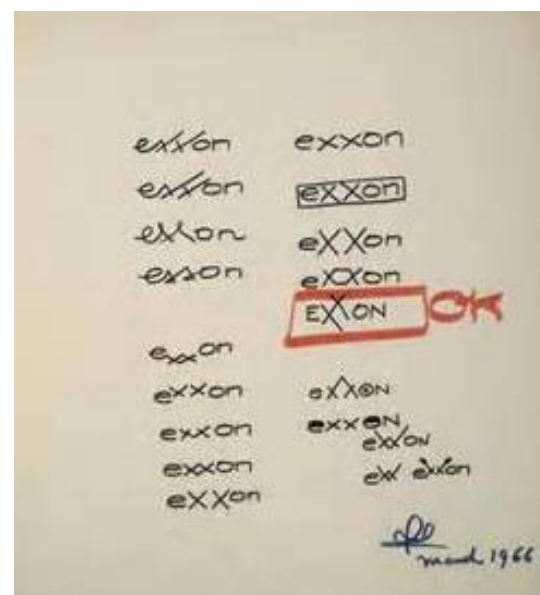 exxon
exxon
exxon
esson
exxon
exxon
exxon
exxon
exxon
exxon
exxon
eXXon
exxon
EXXON OK
exxoN
exxeN
exxoN
exx exxon
march 1966